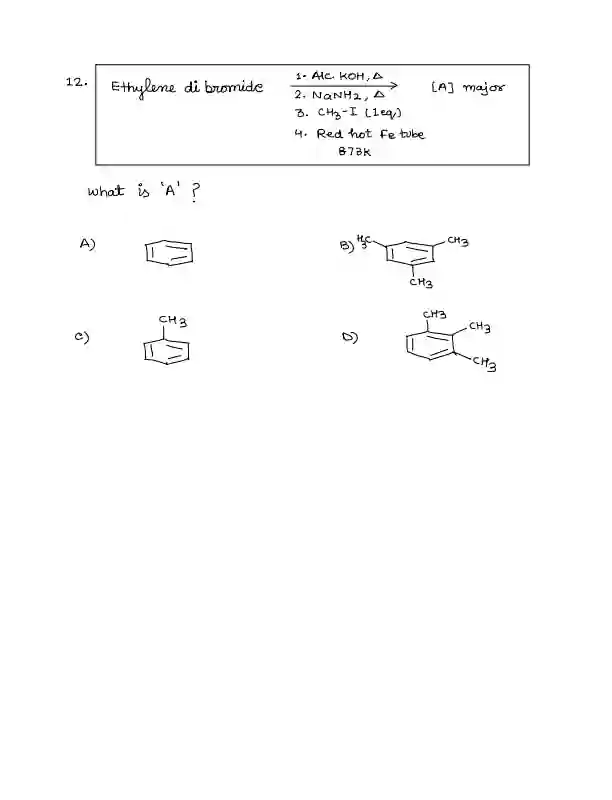 12. Ethylene di bromide 1. Alc. KOH, Δ [A] major
2. NaNH2, Δ
3. CH3-I (1eq)
4. Red hot Fe tube
873K
What is 'A' ?
A) B) H3C CH3
CH3
C) CH3 D) CH3
CH3
CH3